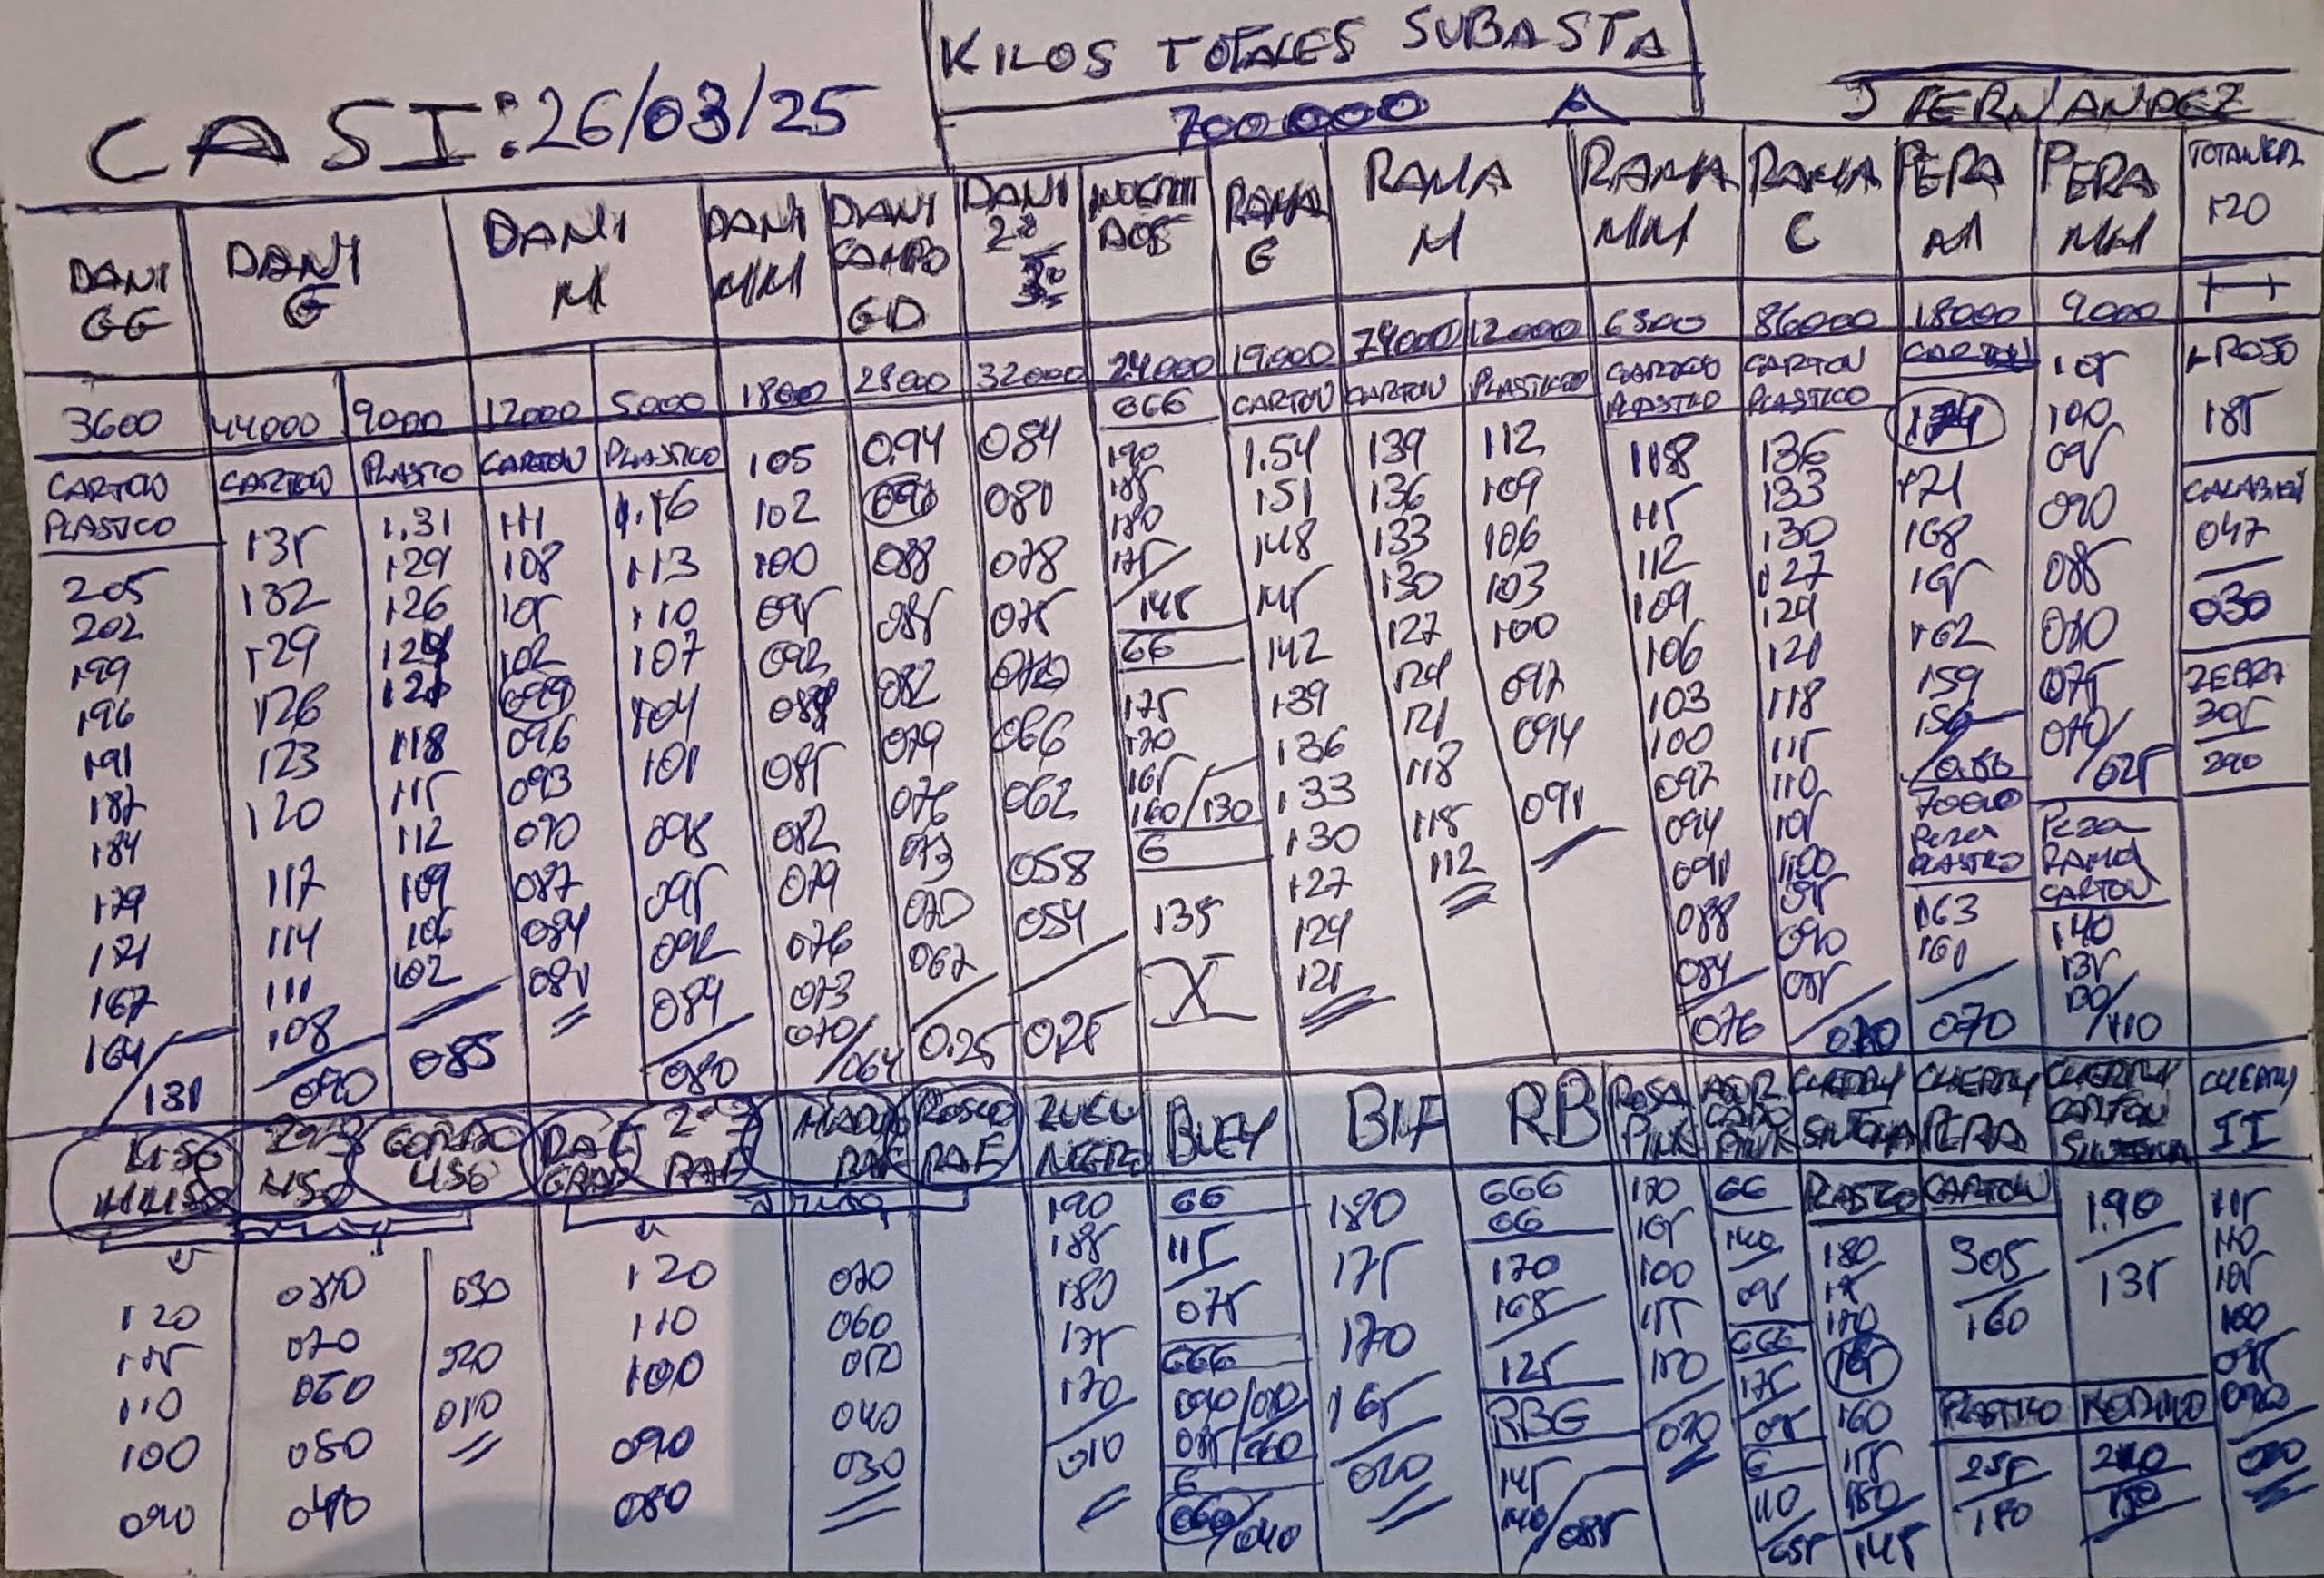 KILOS TOTALES SUBASTA
700000 A
CASI: 26/03/25
J FERNANDEZ
DANI GG
3600
CARTON
PLASTICO
205
202
199
196
191
187
184
179
171
167
164/131
DANI G
44000
CARTON
135
132
129
126
123
120
117
114
111
108
090
9000
PLASTICO
1.31
129
126
118
115
112
109
106
102
085
DANI M
12000
CARTON
111
108
105
102
099
096
093
090
087
084
081
5000
PLASTICO
1.16
113
110
107
104
101
098
095
092
089
080
DANI MM
1800
105
102
100
095
092
085
082
079
076
073
070/064
DANI CAMPO GD
2800
0.94
088
085
082
079
076
073
070
067
0.25
DANI 2ª
32000
084
080
078
075
070
066
062
058
054
0.25
24000
666
190
185
180
175
145
66
175
170
165
160/130
6
135
X
RAMA G
19000
CARTON
1.54
151
148
145
142
139
136
133
130
127
124
121
RAMA M
74000
CARTON
139
136
133
130
127
124
121
118
115
112
12000
PLASTICO
112
109
106
103
100
097
094
091
RAMA MM
6500
CARTON
PLASTICO
118
115
112
109
106
103
100
097
094
091
088
084
076
RAMA C
86000
CARTON
PLASTICO
136
133
130
127
124
121
118
115
110
105
100
095
090
085
070
PERA M
18000
CARTON
174
171
168
165
162
159
156
0.80
7000
PERA
PLASTICO
163
160
070
PERA MM
9000
105
100
095
090
085
080
075
070/025
PERA
RAMA
CARTON
140
135
130/110
120
185
047
030
ZEBRA
395
290
2ª MSO
080
070
060
050
040
GORDO
030
020
010
MSO
120
115
110
100
090
RAF
120
110
100
090
080
2ª RAF
MADUR RAF
070
060
050
040
030
ROSCO RAF
NEGRO
190
185
180
175
170
010
BUEY
66
115
075
666
090/080
085/060
6
060/040
BIF
180
175
170
165
020
RB
666
66
170
165
125
RBG
145
140/085
ROSA PINK
100
155
150
070
PINK
66
140
095
666
175
095
6
110
055
CHERRY
PLASTICO
180
175
170
165
160
155
150
145
CHERRY PERA
CARTON
305
160
PLASTICO
255
180
CHERRY CARTON
1.90
135
REDONDO
240
150
CHERRY II
115
110
105
100
095
090